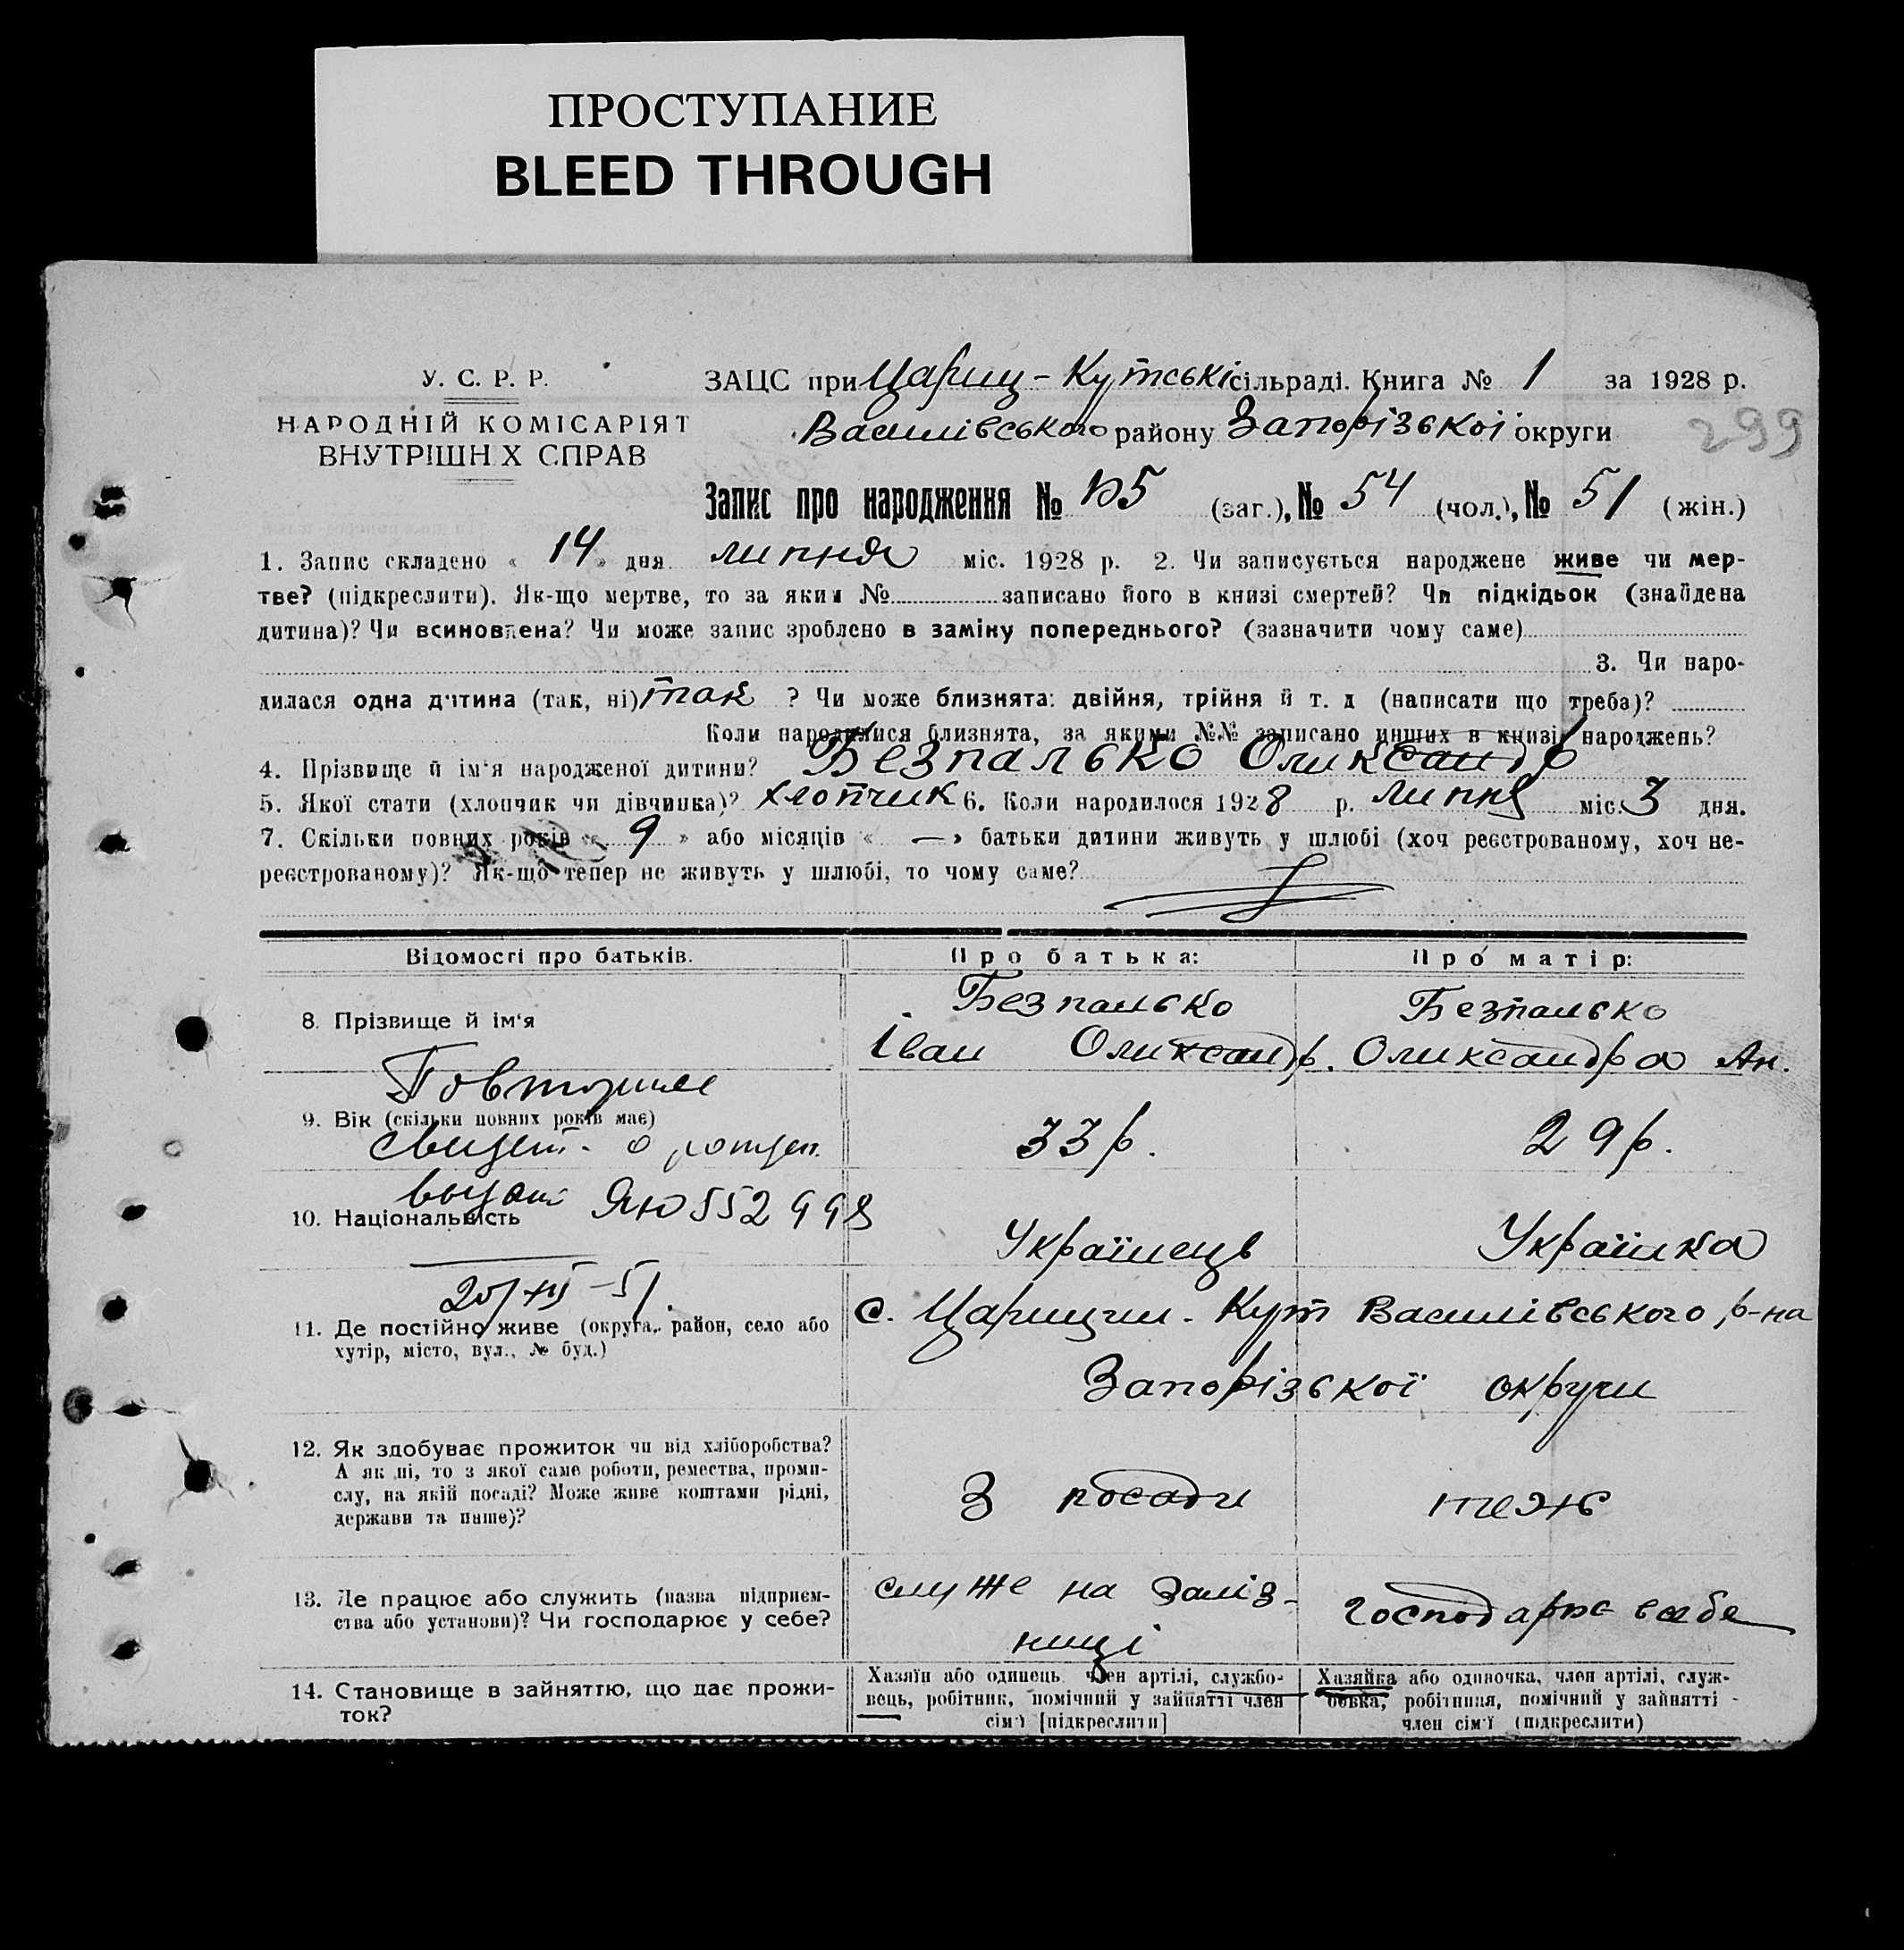 ПРОСТУПАНИЕ
BLEED THROUGH
У. С. Р. Р.
НАРОДНІЙ КОМІСАРІЯТ
ВНУТРІШН Х СПРАВ
ЗАЦС при Цариц-Кутські сільраді. Книга № 1 за 1928 р.
Василівського району Запорізької округи
299
Запис про народження № 105 (заг.), № 54 (чол.), № 51 (жін.)
1. Запис складено « 14 » дня липня міс. 1928 р. 2. Чи записується народжене живе чи мер-
тве? (підкреслити). Як-що мертве, то за яким № записано його в книзі смертей? Чи підкідьок (знайдена
дитина)? Чи всиновлена? Чи може запис зроблено в заміну попереднього? (зазначити чому саме)
3. Чи наро-
дилася одна дитина (так, ні) так ? Чи може близнята: двійня, трійня й т. д (написати що треба)?
Коли народилися близнята, за якими №№ записано инших в книзі народжень?
4. Прізвище й ім'я народженої дитини? Безпалько Оликсандр
5. Якої стати (хлопчик чи дівчинка)? хлопчик 6. Коли народилося 1928 р. липня міс. 3 дня.
7. Скільки повних років « 9 » або місяців « — » батьки дитини живуть у шлюбі (хоч реєстрованому, хоч не-
реєстрованому)? Як-що тепер не живуть у шлюбі, то чому саме?
Відомості про батьків.
Про батька:
Про матір:
8. Прізвище й ім'я
Безпалько
Іван Оликсандр.
Безпалько
Оликсандра Ан.
Повторне
9. Вік (скільки повних років має)
33 р.
29 р.
свидет. о рожден.
выдан ЯЮ 552998
10. Національність
Українець
Українка
20/XII-51.
11. Де постійно живе (округа, район, село або
хутір, місто, вул., № буд.)
с. Царицин-Кут Василівського р-на
Запорізької округи
12. Як здобуває прожиток чи від хліборобства?
А як ні, то з якої саме роботи, ремества, проми-
слу, на якій посаді? Може живе коштами рідні,
держави та инше)?
З посади
теж
13. Де працює або служить (назва підприєм-
ства або установи)? Чи господарює у себе?
служе на заліз-
ниці
господарює в себе
14. Становище в зайняттю, що дає прожи-
ток?
Хазяїн або одинець член артілі, службо-
вець, робітник, помічний у зайнятті член
сім'ї [підкреслити]
Хазяйка або одиночка, член артілі, служ-
бовка, робітниця, помічний у зайнятті -
член сім'ї (підкреслити)